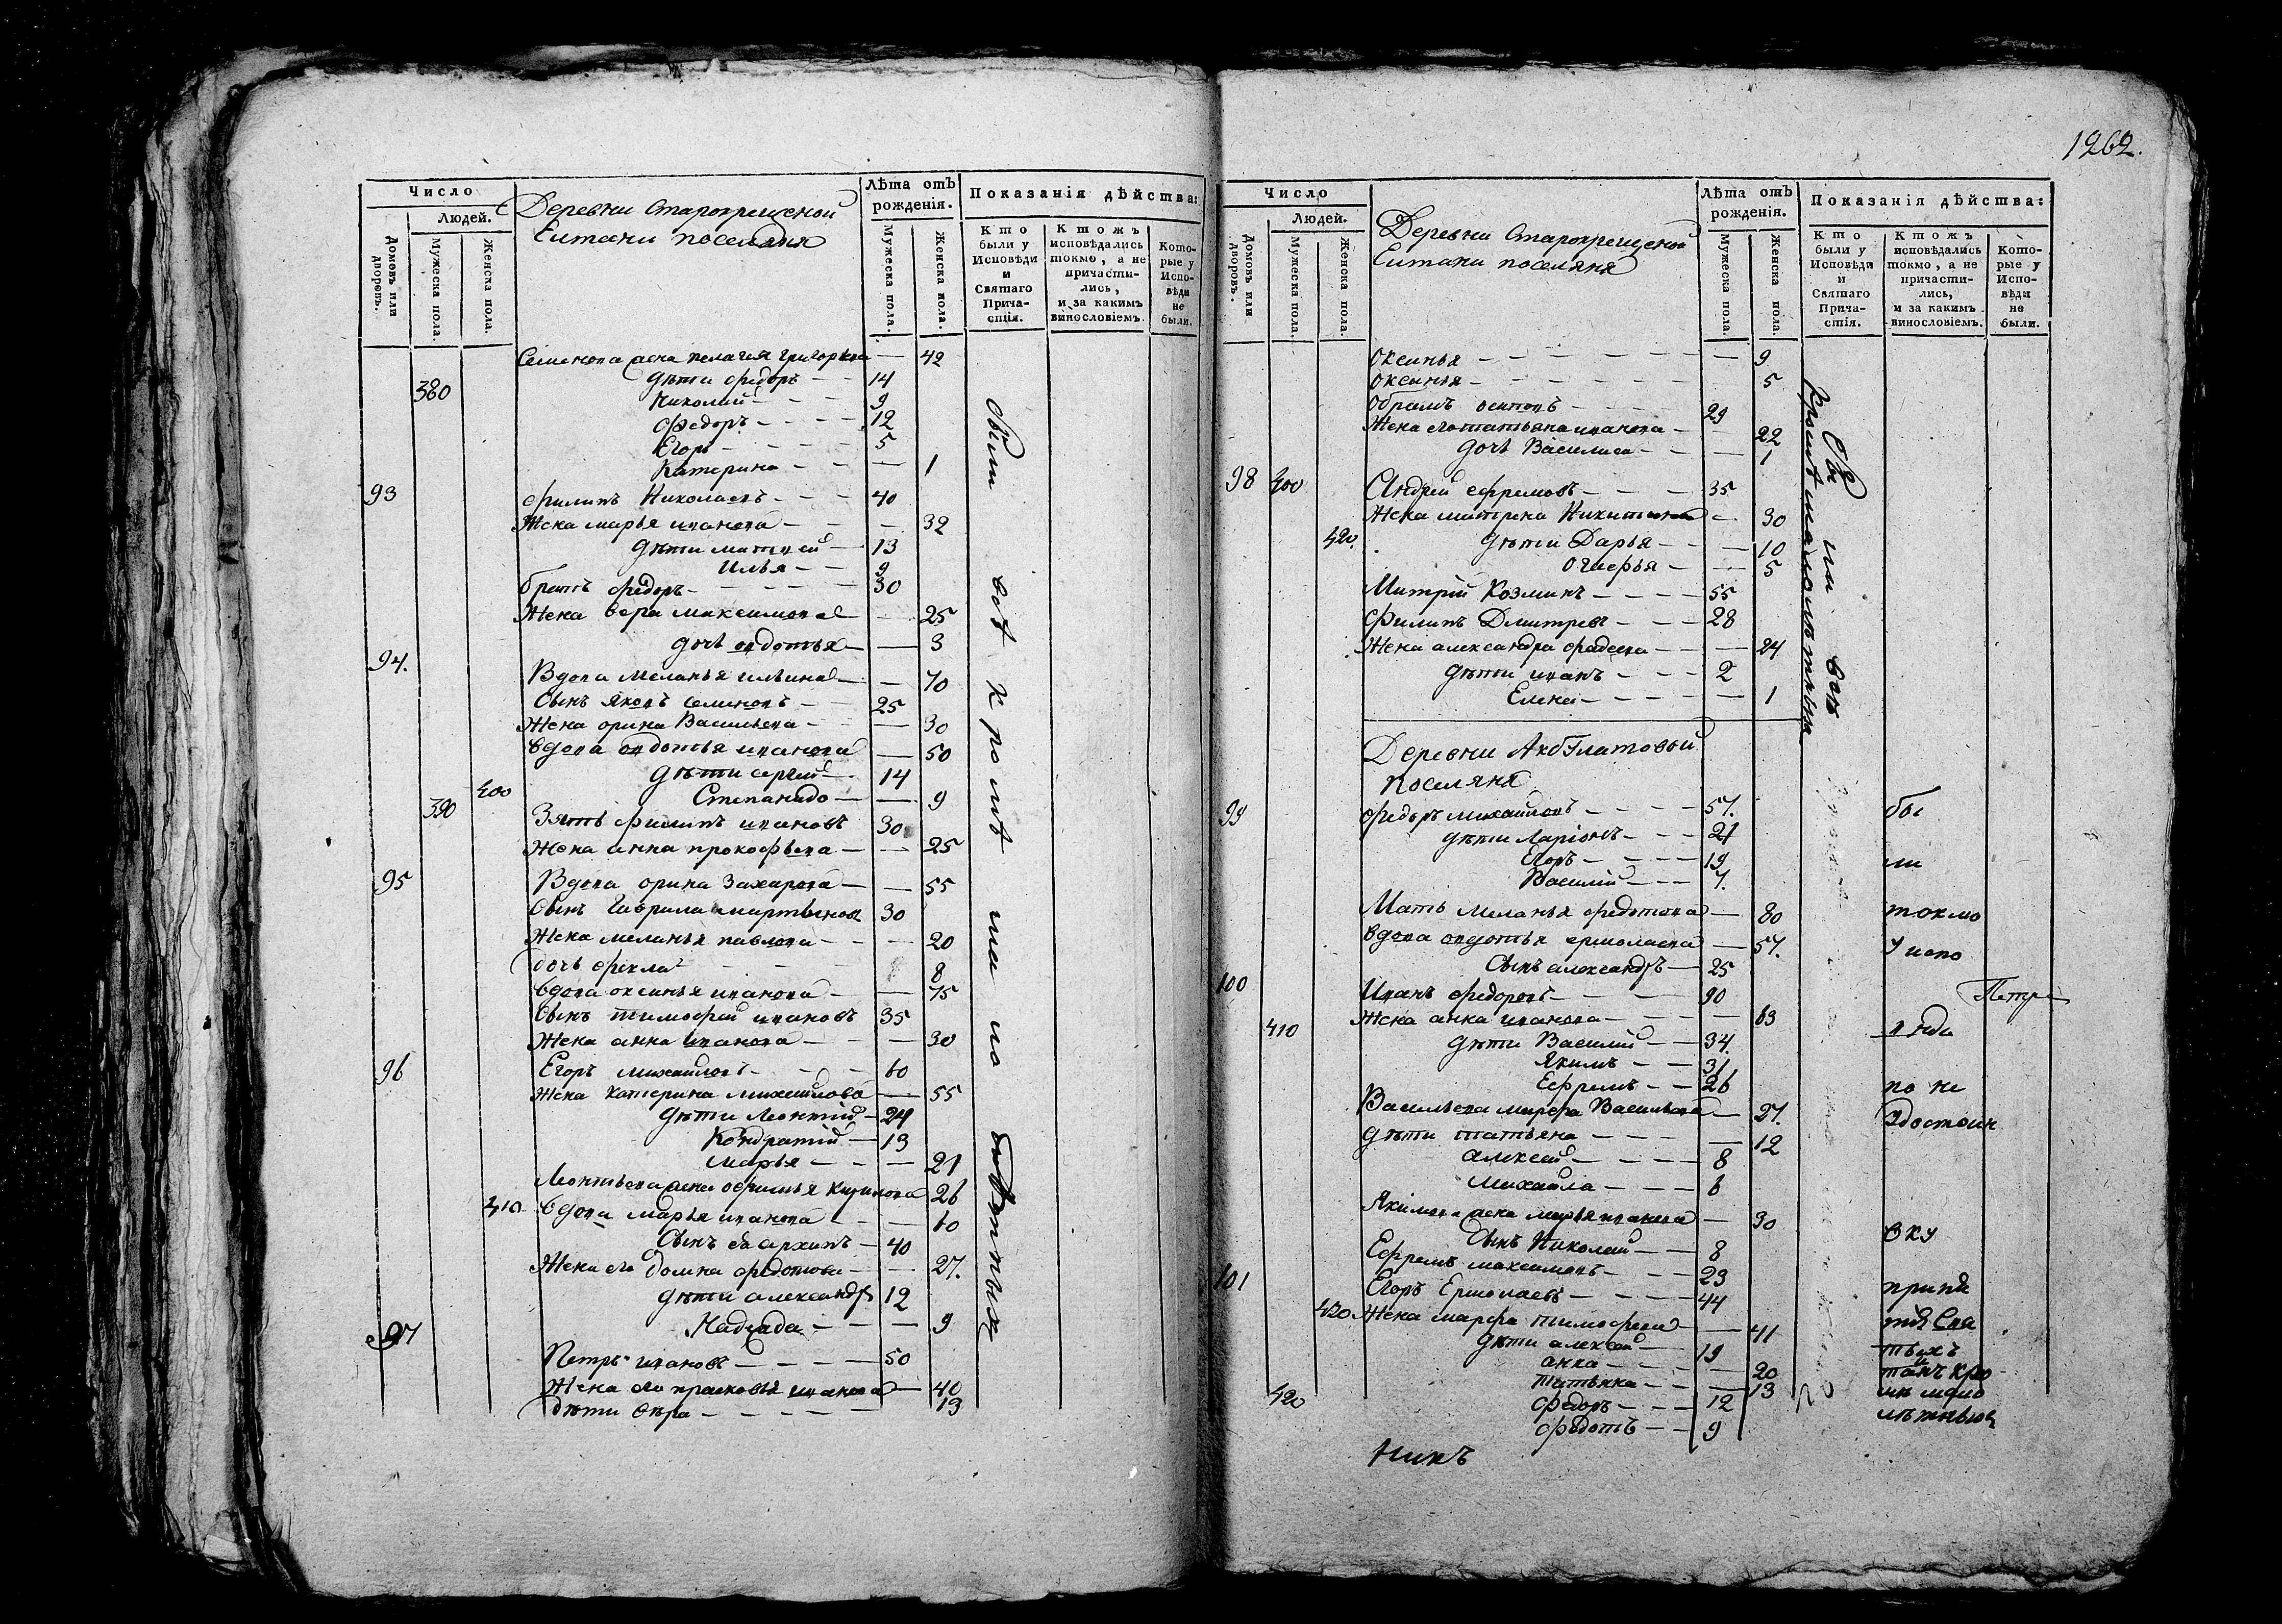 Число
Людей.
Домовъ или дворовъ.
Мужеска пола.
Женска пола.
Деревни Старокрещеной
Ситани поселяня
Лѣта отъ рожденія.
Мужеска пола.
Женска пола.
Показанія дѣйства:
Кто были у Исповѣди и Святаго Причастія.
Ктожъ исповѣдались токмо, а не причастились, и за какимъ винословіемъ.
Которые у Исповѣди не были.
Семенова жена пелагея григорьева — 42
380 дѣти федоръ — 14
Николай — 9
федоръ — 12
Егоръ — 5
Катерина — 1
93 филипъ Николаевъ — 40
Жена марья иванова — 32
дѣти матвей — 13
Илья — 9
братъ федоръ — 30
Жена вера максимова — 25
дочь овдотья — 3
94. Вдова Меланья ильина — 70
Сынъ яковъ семеновъ — 25
Жена орина Васильева — 30
вдова овдотья иванова — 50
дѣти сергей — 14
400 Степанида — 9
390 Зять филипъ ивановъ 30
Жена анна прокофьева — 25
95 Вдова орина Захарова — 55
Сынъ Гаврила мартыновъ 30
Жена меланья павлова — 20
дочь фекла 8
вдова оксинья иванова — 75
Сынъ тимофей ивановъ 35
Жена анна иванова — 30
96 Егоръ михайловъ — 60
Жена катерина михайлова — 55
дѣти Леонтій — 24
Кондратій — 13
марья — 21
Леонтьева жена офимья кирилова 26
410 вдова марья иванова — 60
Сынъ ея архипъ — 40
Жена его домна федотова — 27.
дѣти александръ 12
Надежда — 9
97 Петръ ивановъ — 50
Жена его прасковья иванова — 40
дѣти вѣра — 13
были всѣ кромѣ мало лѣтныхъ
1262.
Число
Людей.
Домовъ или дворовъ.
Мужеска пола.
Женска пола.
Деревни Старокрещеной
Ситани поселяня
Лѣта отъ рожденія.
Мужеска пола.
Женска пола.
Показанія дѣйства:
Кто были у Исповѣди и Святаго Причастія.
Ктожъ исповѣдались токмо, а не причастились, и за какимъ винословіемъ.
Которые у Исповѣди не были.
оксинья — 9
оксинья — 5
обрамъ осиповъ — 29
Жена его татьяна иванова — 22
дочь Василиса — 1
98 400 Андрей ефремовъ — 35
Жена матрена Никитина — 30
420. дѣти Дарья — 10
5
Митрій Козминъ — 55
филипъ Дмитревъ — 28
Жена александра фадеева — 24
дѣти иванъ — 2
Елена — 1
были всѣ
кромѣ малолѣтныхъ
Деревни
поселяня
99 федоръ михайловъ — 57.
дѣти Ларіонъ — 21
Егоръ — 19
Василій — 7.
Мать меланья федотова — 80
вдова овдотья ермолаева — 57.
Сынъ александръ — 25
100 Иванъ федоровъ — 90
410 Жена анна иванова — 63
дѣти Василій — 34.
Якимъ — 31
Ефремъ — 26
Васильева марфа Васильева — 27.
дѣти татьяна — 12
алексей — 8
михайла — 6
Якимова жена марья иванова — 30
Сынъ Николай — 8
Ефремъ максимовъ — 23
101 Егоръ Ермолаевъ — 44
430. Жена марфа тимофеева — 41
дѣти алексей — 19
анна — 20
татьяна — 13
420 федоръ — 12
федотъ — 9
бы
ли
токмо
у испо
по не
удостоин
ству
приня
тія Свя
тыхъ
таинъ кро
мѣ мало
лѣтныхъ